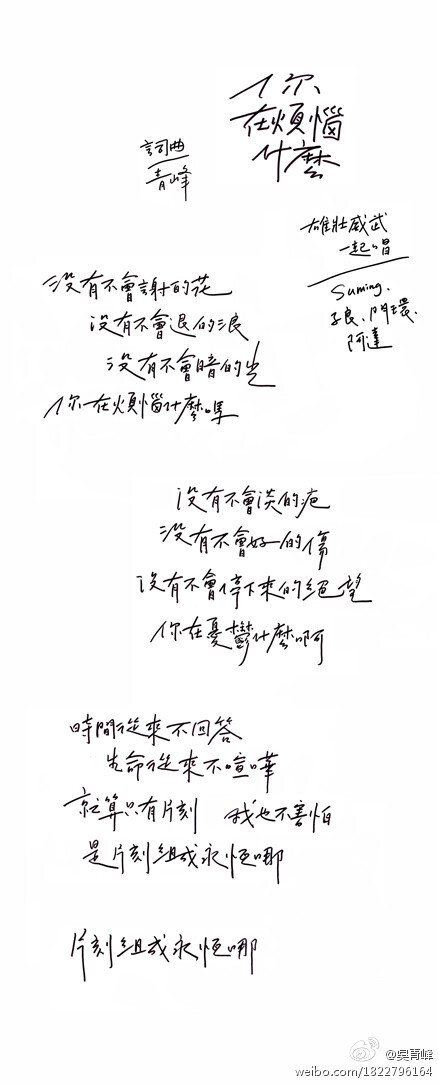 你
在煩惱
什麼
詞曲
青峰
雄壯威武
一起唱
Suming、
子良、門環、
阿達
沒有不會謝的花
沒有不會退的浪
沒有不會暗的光
你在煩惱什麼嗎
沒有不會淡的疤
沒有不會好的傷
沒有不會停下來的絕望
你在憂鬱什麼啊
時間從來不回答
生命從來不喧嘩
就算只有片刻 我也不害怕
是片刻組成永恆哪
片刻組成永恆哪
@吴青峰
weibo.com/1822796164